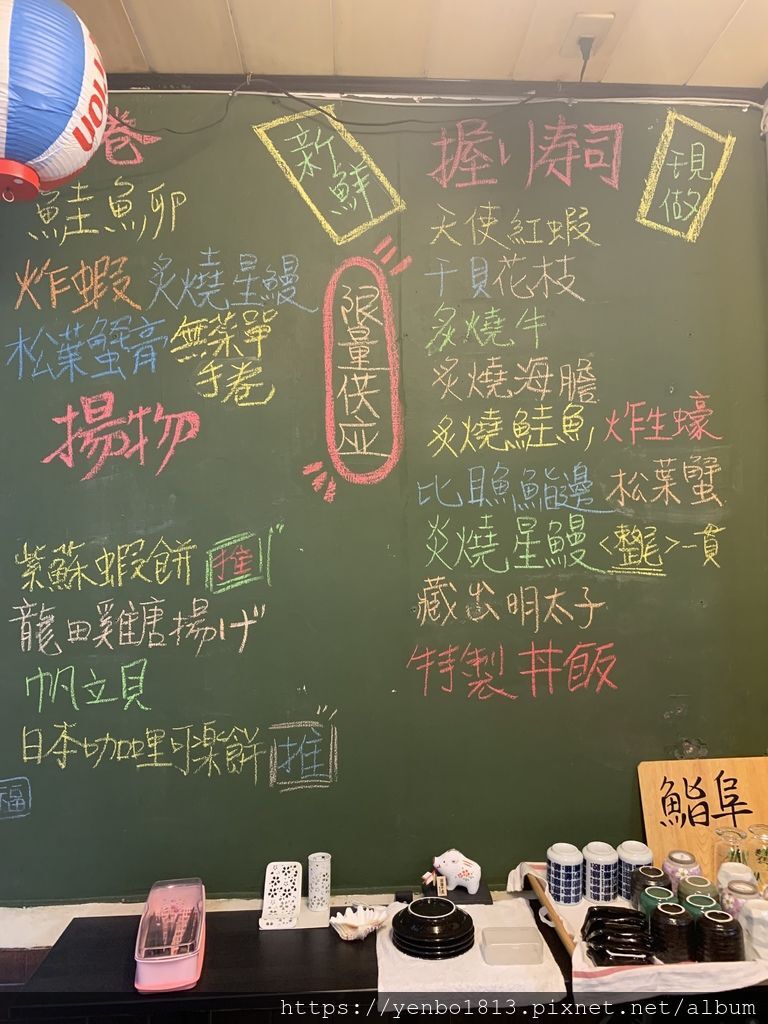 卷
鮭魚卵
炸蝦 炙燒星鰻
松葉蟹膏 無菜單
手卷
揚物
紫蘇蝦餅 推
龍田雞塘揚げ
帆立貝
日本咖哩可樂餅 推
福
新鮮
限量供应
握り寿司
現做
天使紅蝦
干貝花枝
炙燒牛
炙燒海膽
炙燒鮭魚 炸生蠔
比目魚鮨邊 松葉蟹
炎燒星鰻<整尾>一貫
藏出明太子
特製丼飯
鮨阜
https://yenbo1813.pixnet.net/album